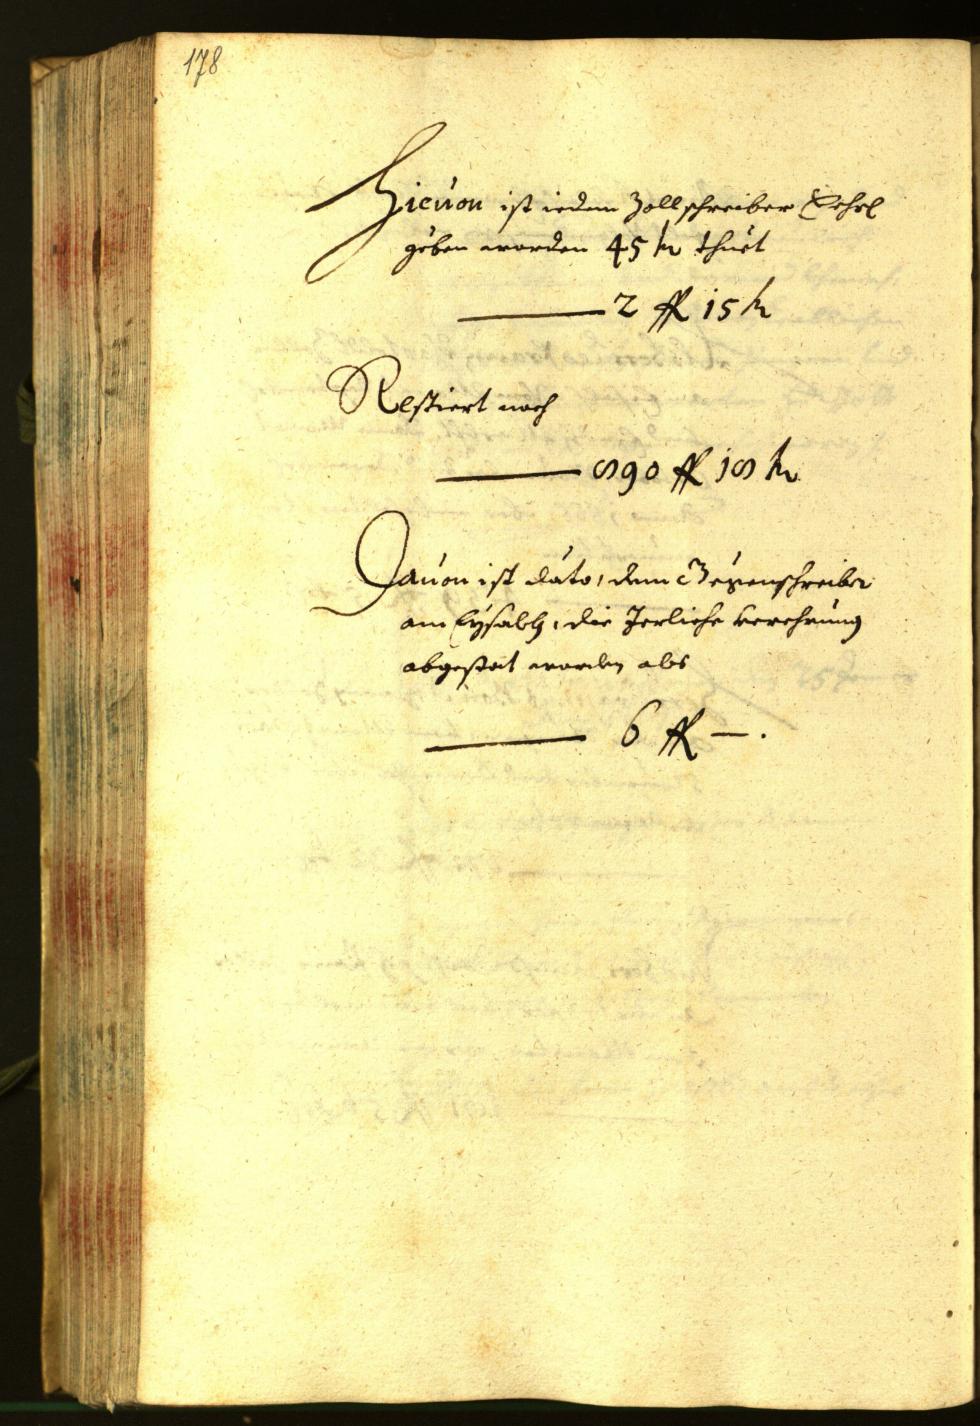 178
Hieuon ist iedem Zollschreiber
geben worden 45 kr thuet
2 fl 15 kr
Restiert noch
890 fl 18 kr
Dauon ist dato, dem Gegenschreiber
am Eysackh, die Jerliche verehrung
abgestat worden als
6 fl —.